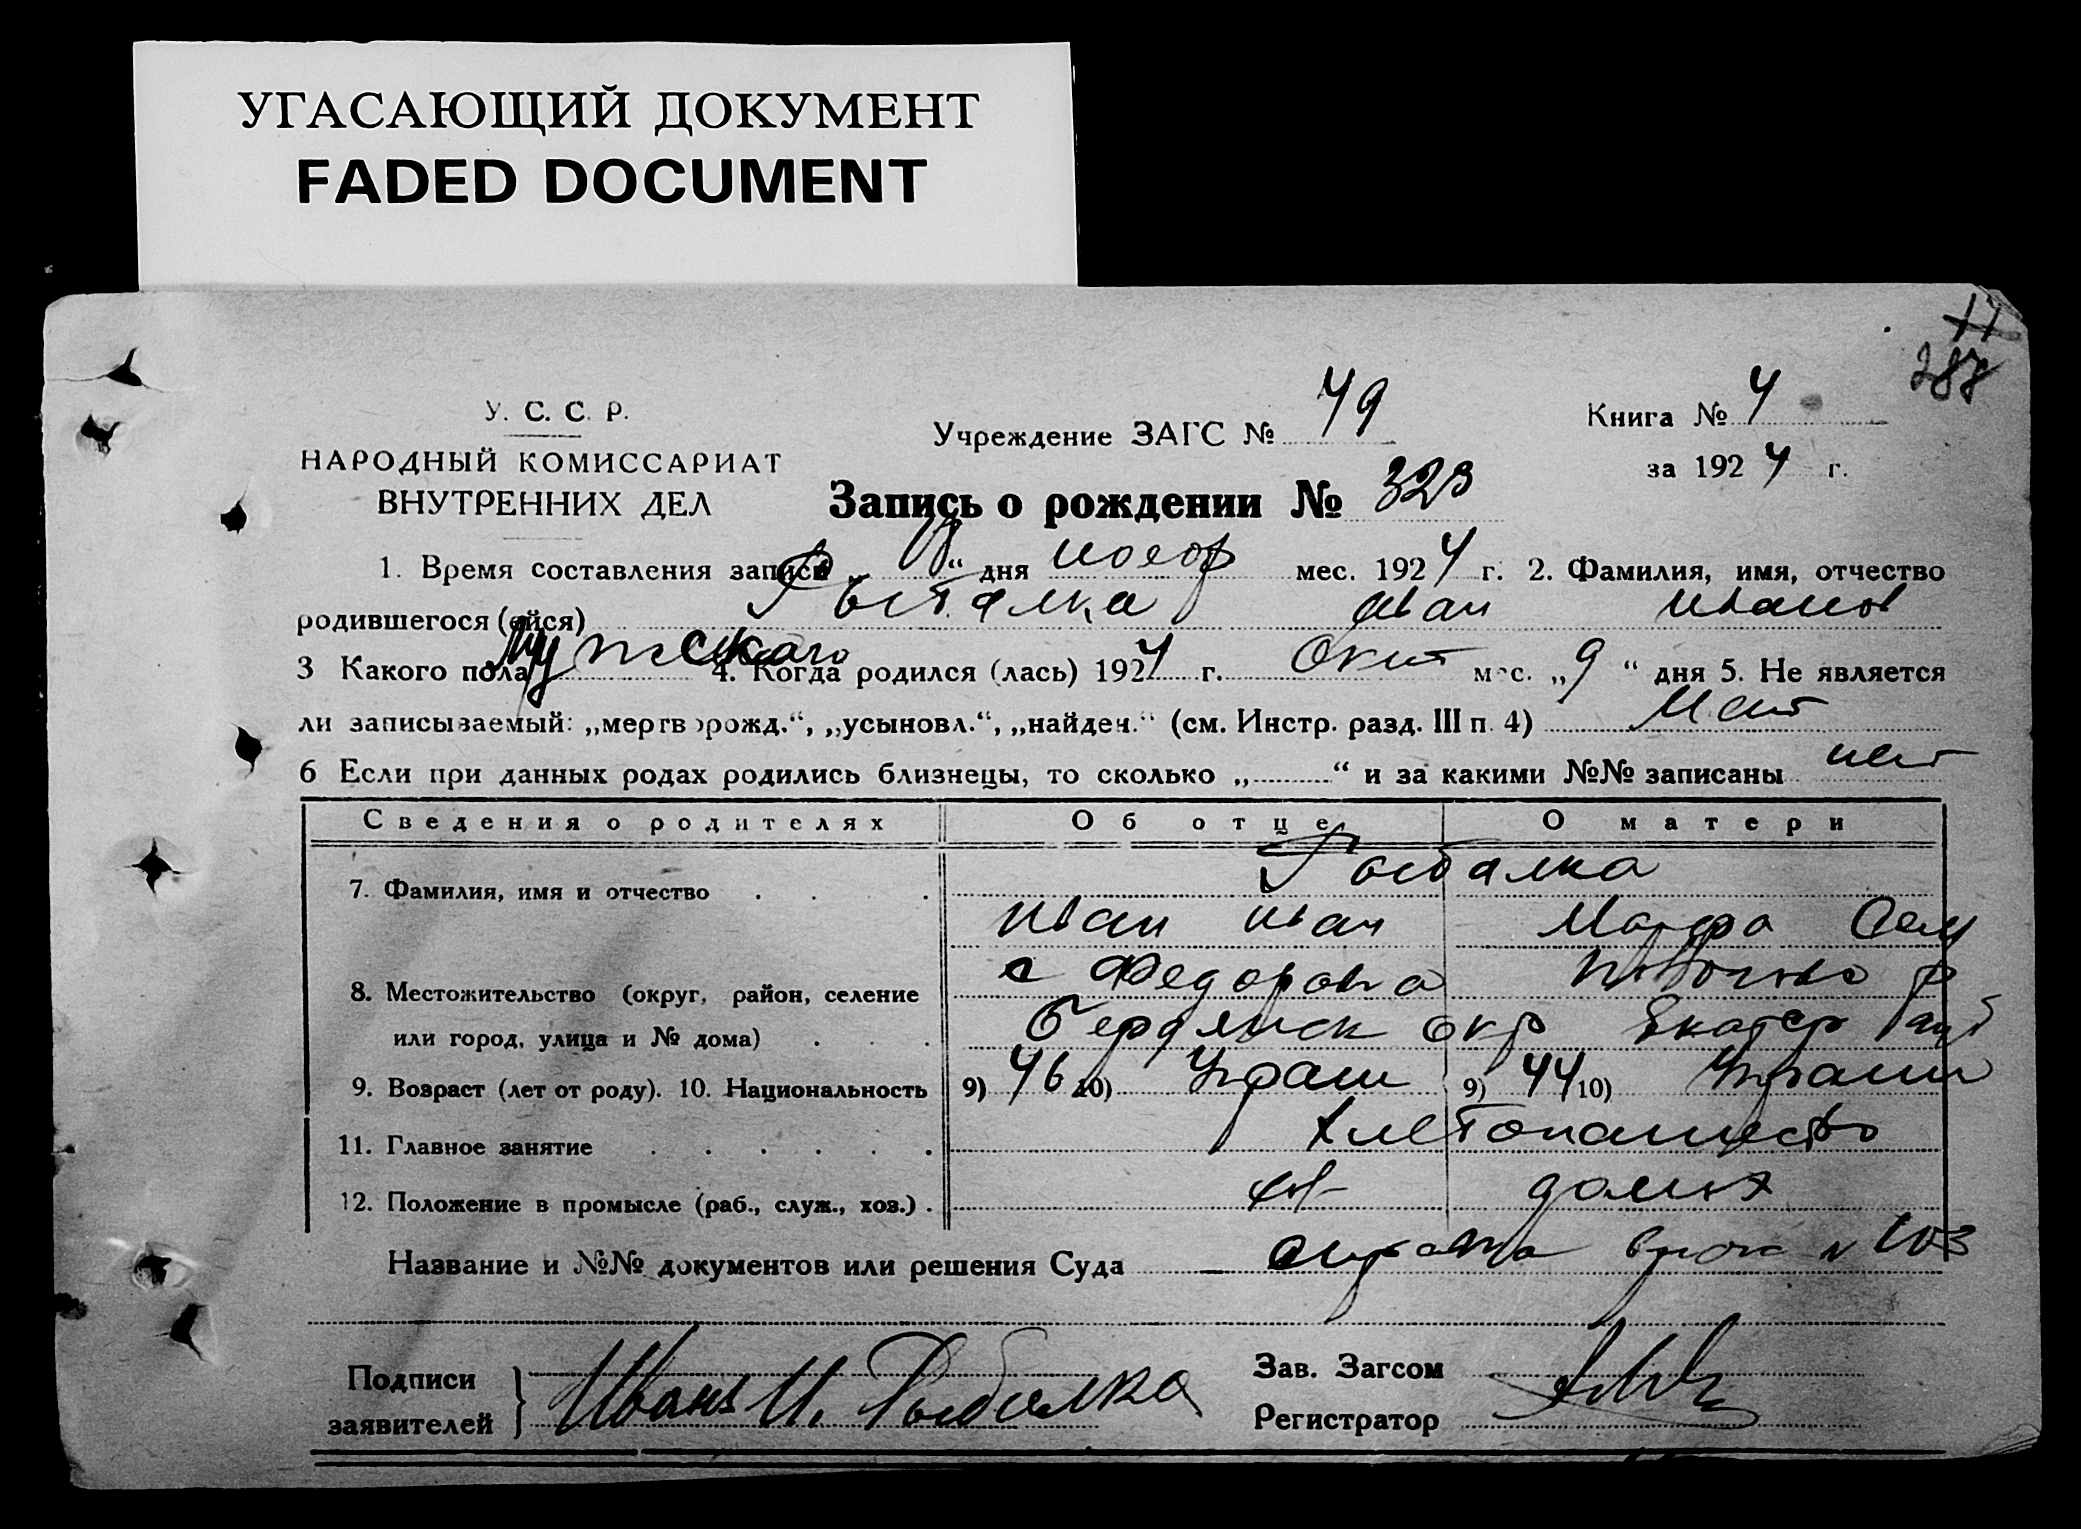 УГАСАЮЩИЙ ДОКУМЕНТ
FADED DOCUMENT
287
У. С. С. Р.
НАРОДНЫЙ КОМИССАРИАТ
ВНУТРЕННИХ ДЕЛ
Учреждение ЗАГС № 49
Книга № 4
за 1924 г.
Запись о рождении № 323
1. Время составления записи „ “ дня нояб мес. 1924 г. 2. Фамилия, имя, отчество
родившегося (ейся) Рыбалка Иван Иванов
3 Какого пола Мужского 4. Когда родился (лась) 1924 г. Окт мес. „9“ дня 5. Не является
ли записываемый: „мертворожд.“, „усыновл.“, „найден.“ (см. Инстр. разд. III п. 4) Нет
6 Если при данных родах родились близнецы, то сколько „ “ и за какими №№ записаны нет
Сведения о родителях Об отце О матери
7. Фамилия, имя и отчество Рыбалка
Иван Иван Марфа Сем
8. Местожительство (округ, район, селение с Федоровка
или город, улица и № дома) Бердянск окр Екатер губ
9. Возраст (лет от роду). 10. Национальность 9) 46 10) Украин 9) 44 10) Украин
11. Главное занятие Хлебопашество
12. Положение в промысле (раб., служ., хоз.) домох
Название и №№ документов или решения Суда — справка врача № 103
Подписи
заявителей } Иванъ И. Рыбалка
Зав. Загсом
Регистратор